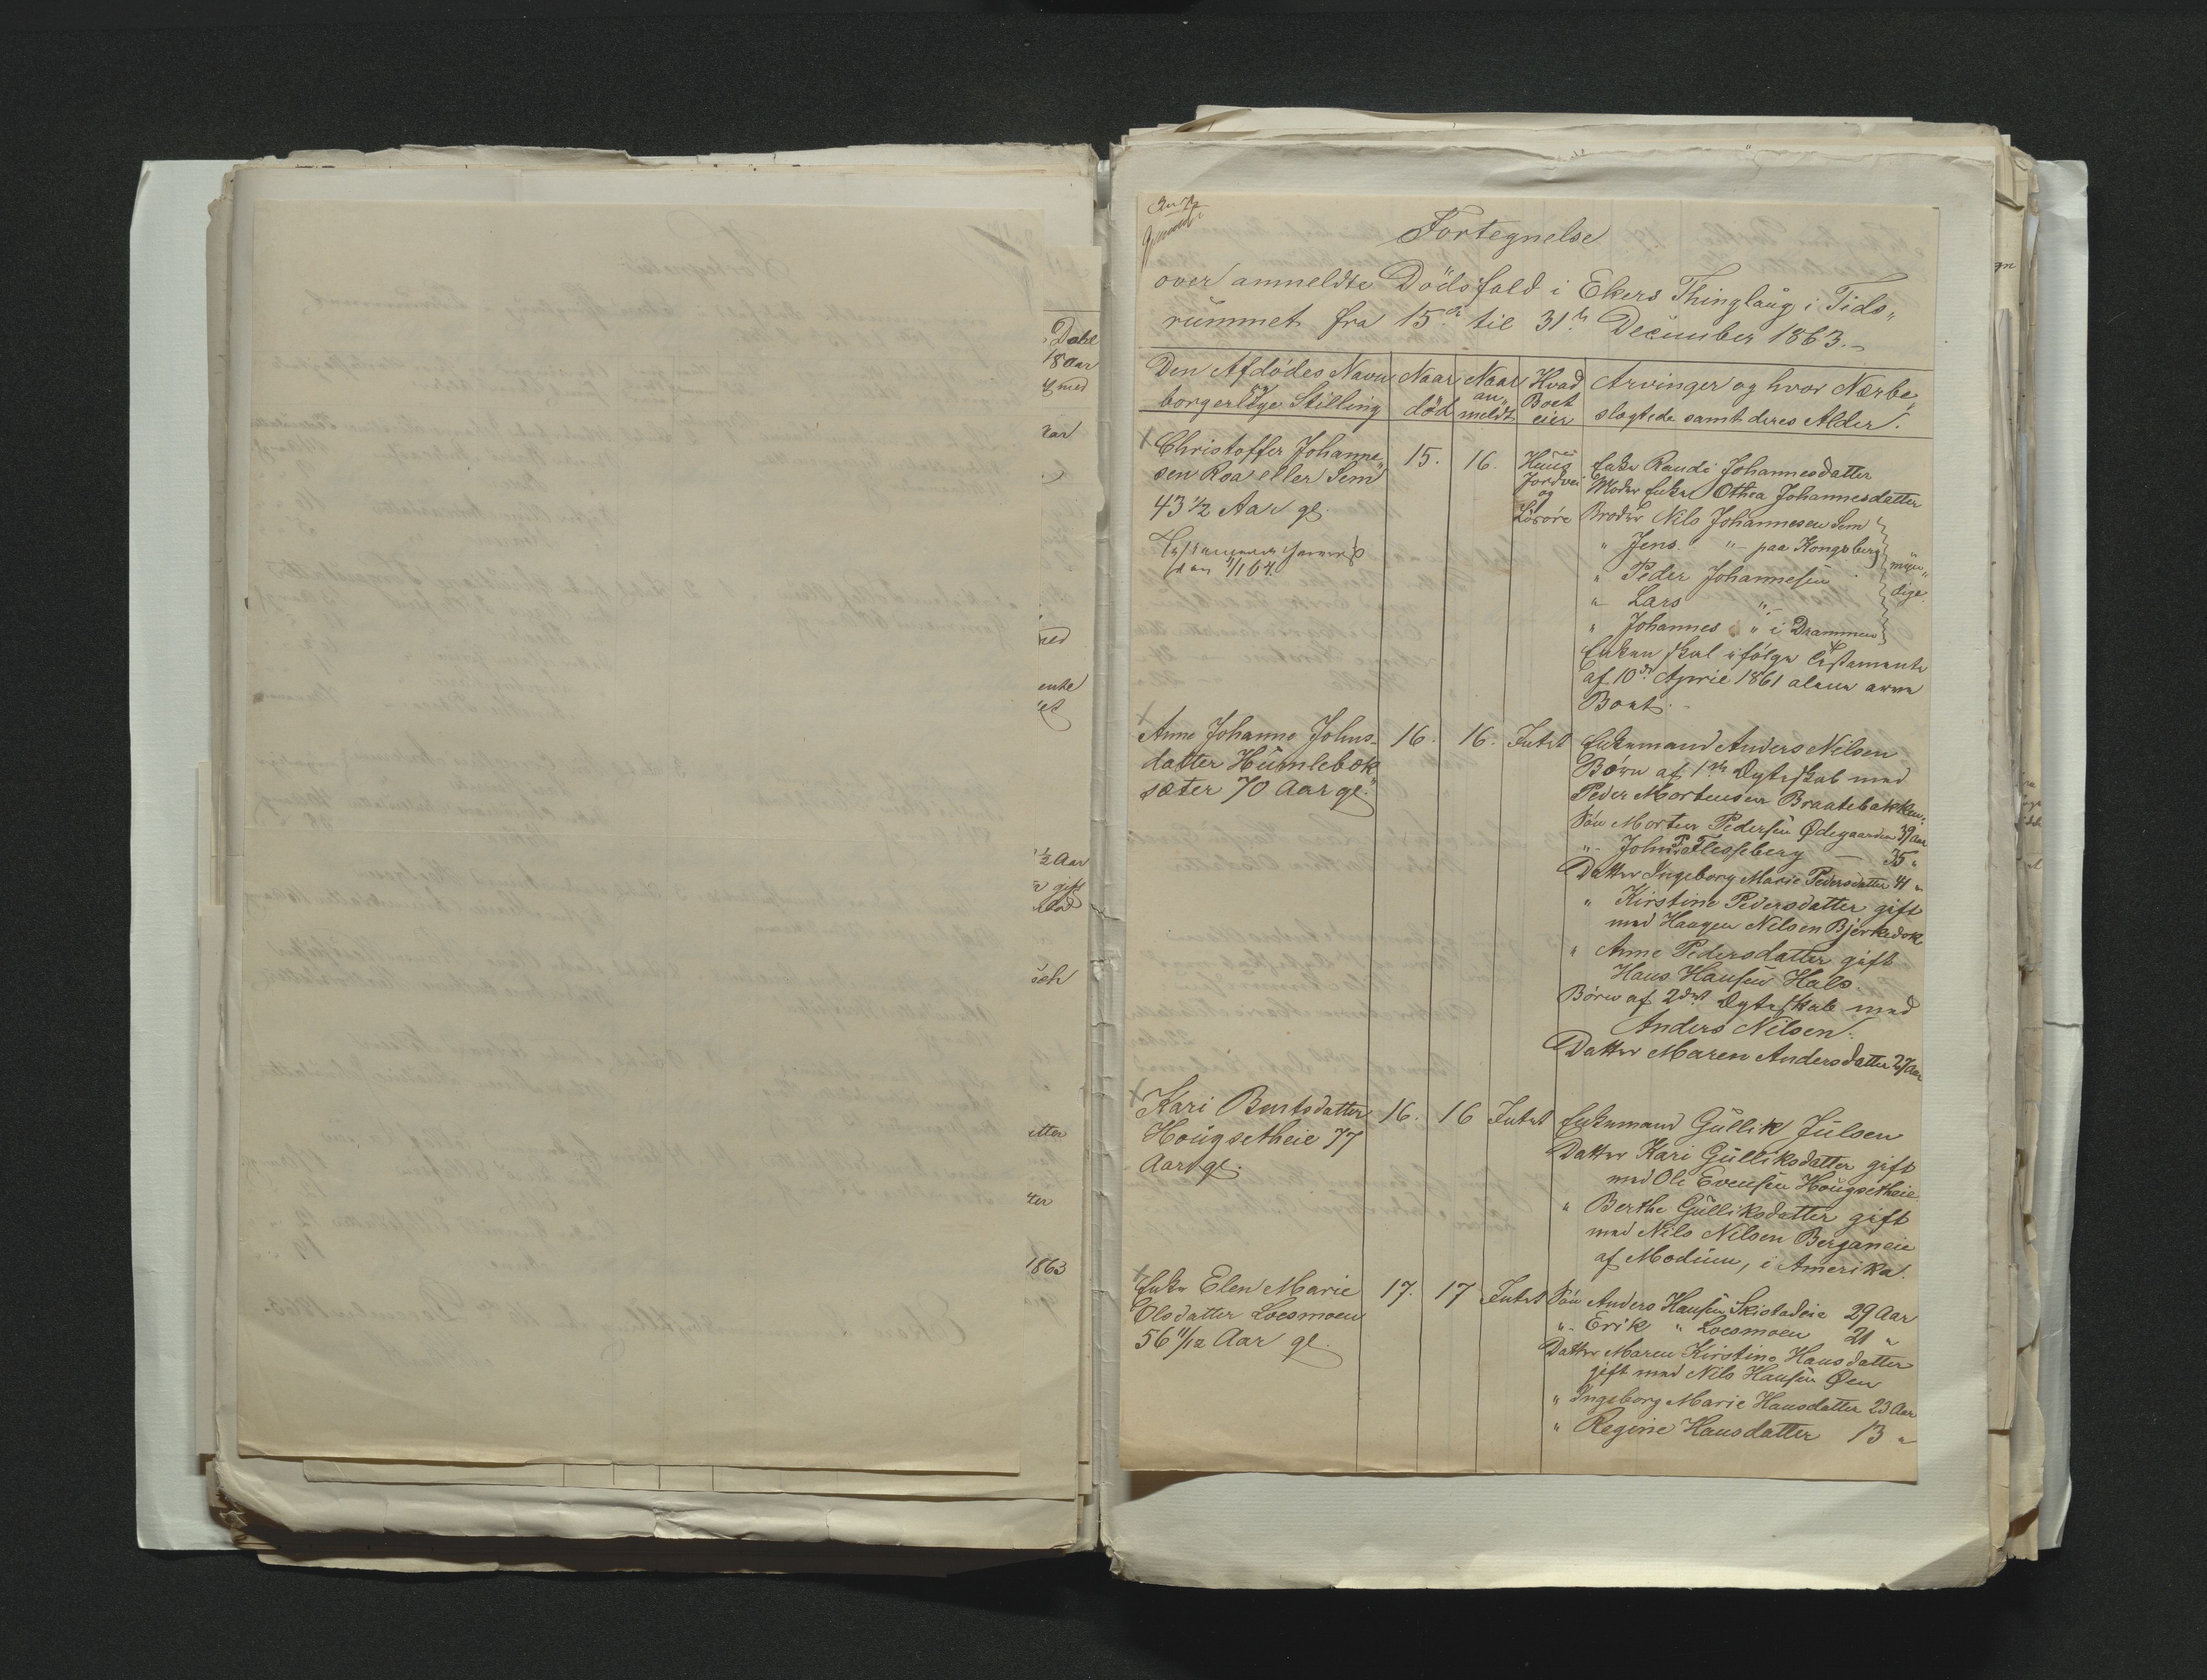 Dahl
18 Aar
med
1863
Fortegnelse
over anmeldte Dödsfald i Ekers Thinglaug i Tids„
rummet fra 15de til 31te December 1863.–
Den Afdödes Navn og borgerlige Stilling
Naar död
Naar an„meldt
Hvad Boet eier
Arvinger og hvor Nærbe„slægtede samt deres Alder.
Christoffer Johanne„
sen Roa eller Sem
43 1/2 Aar gl.
15.
16.
Huus
Jordvei
og
Lösöre
Enke Randi Johannesdatter
Moder Enke Othea Johannesdatter
Broder Nils Johannesen Sem
„ Jens „ – paa Kongsberg
„ Peder Johannesen
„ Lars „ –
„ Johannes „ i Drammen
myn„
dige
Enken skal ifölge Testamente
af 10de April 1861 alene arve
Boet. –
Anne Johanne Johns-
datter Humlebæk„
sæter 70 Aar gl.
16.
16.
Intet
Enkemand Anders Nilsen
Börn af 1ste Ægteskab med
Peder Mortensen Braatebakken:
Sön Morten Pedersen Ødegaarden 39 Aar
„ John P. Flesseberg — 35 „
Datter Ingeborg Marie Pedersdatter 41 „
„ Kirstine Pedersdatter gift
med Haagen Nilsen Bjerkedok
„ Anne Pedersdatter gift
Hans Hansen Hals.
Börn af 2det Ægteskab med
Anders Nilsen:
Datter Maren Andersdatter 27 Aar
Kari Burtsdatter
Hougsetheie 77
Aar gl.
16.
16
Intet
Enkemand Gullik Julsen
Datter Kari Gulliksdatter gift
med Ole Evensen Hougsetheie
„ Berthe Gulliksdatter gift
med Nils Nilsen Berganeie
af Modum, i Amerika.
Enke Elen Marie
Olsdatter Loesmoen
56 11/12 Aar gl.
17.
17
Intet
Sön Anders Hansen Skistadeie 29 Aar
„ Erik „ Loesmoen 21 „
Datter Maren Kirstine Hansdatter
gift med Nils Hansen Øen
„ Ingeborg Marie Hansdatter 23 Aar
„ Regine Hansdatter 13 „